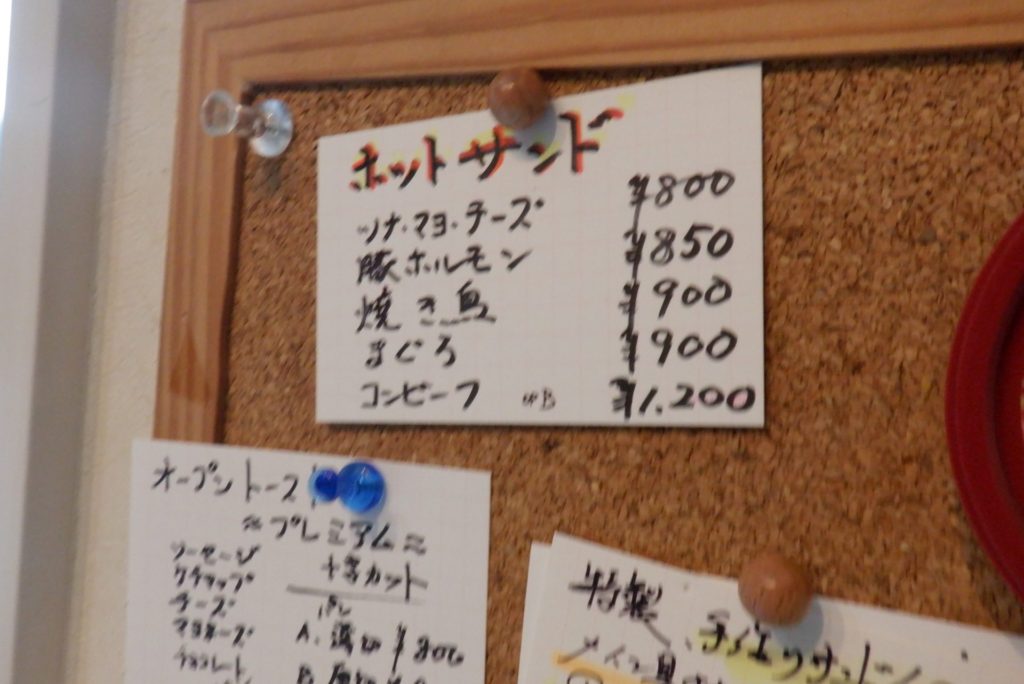 ホットサンド
ツナ・マヨ・チーズ ¥800
豚ホルモン ¥850
焼き鳥 ¥900
まぐろ ¥900
コンビーフ ¥1,200
オープントースト
≈プレミアム≈
ソーセージ
ケチャップ
チーズ
マヨネーズ
チョコレート
十字カット
A. 薄切 ¥800
B. 厚切
特製、手作りサンド
メイン具